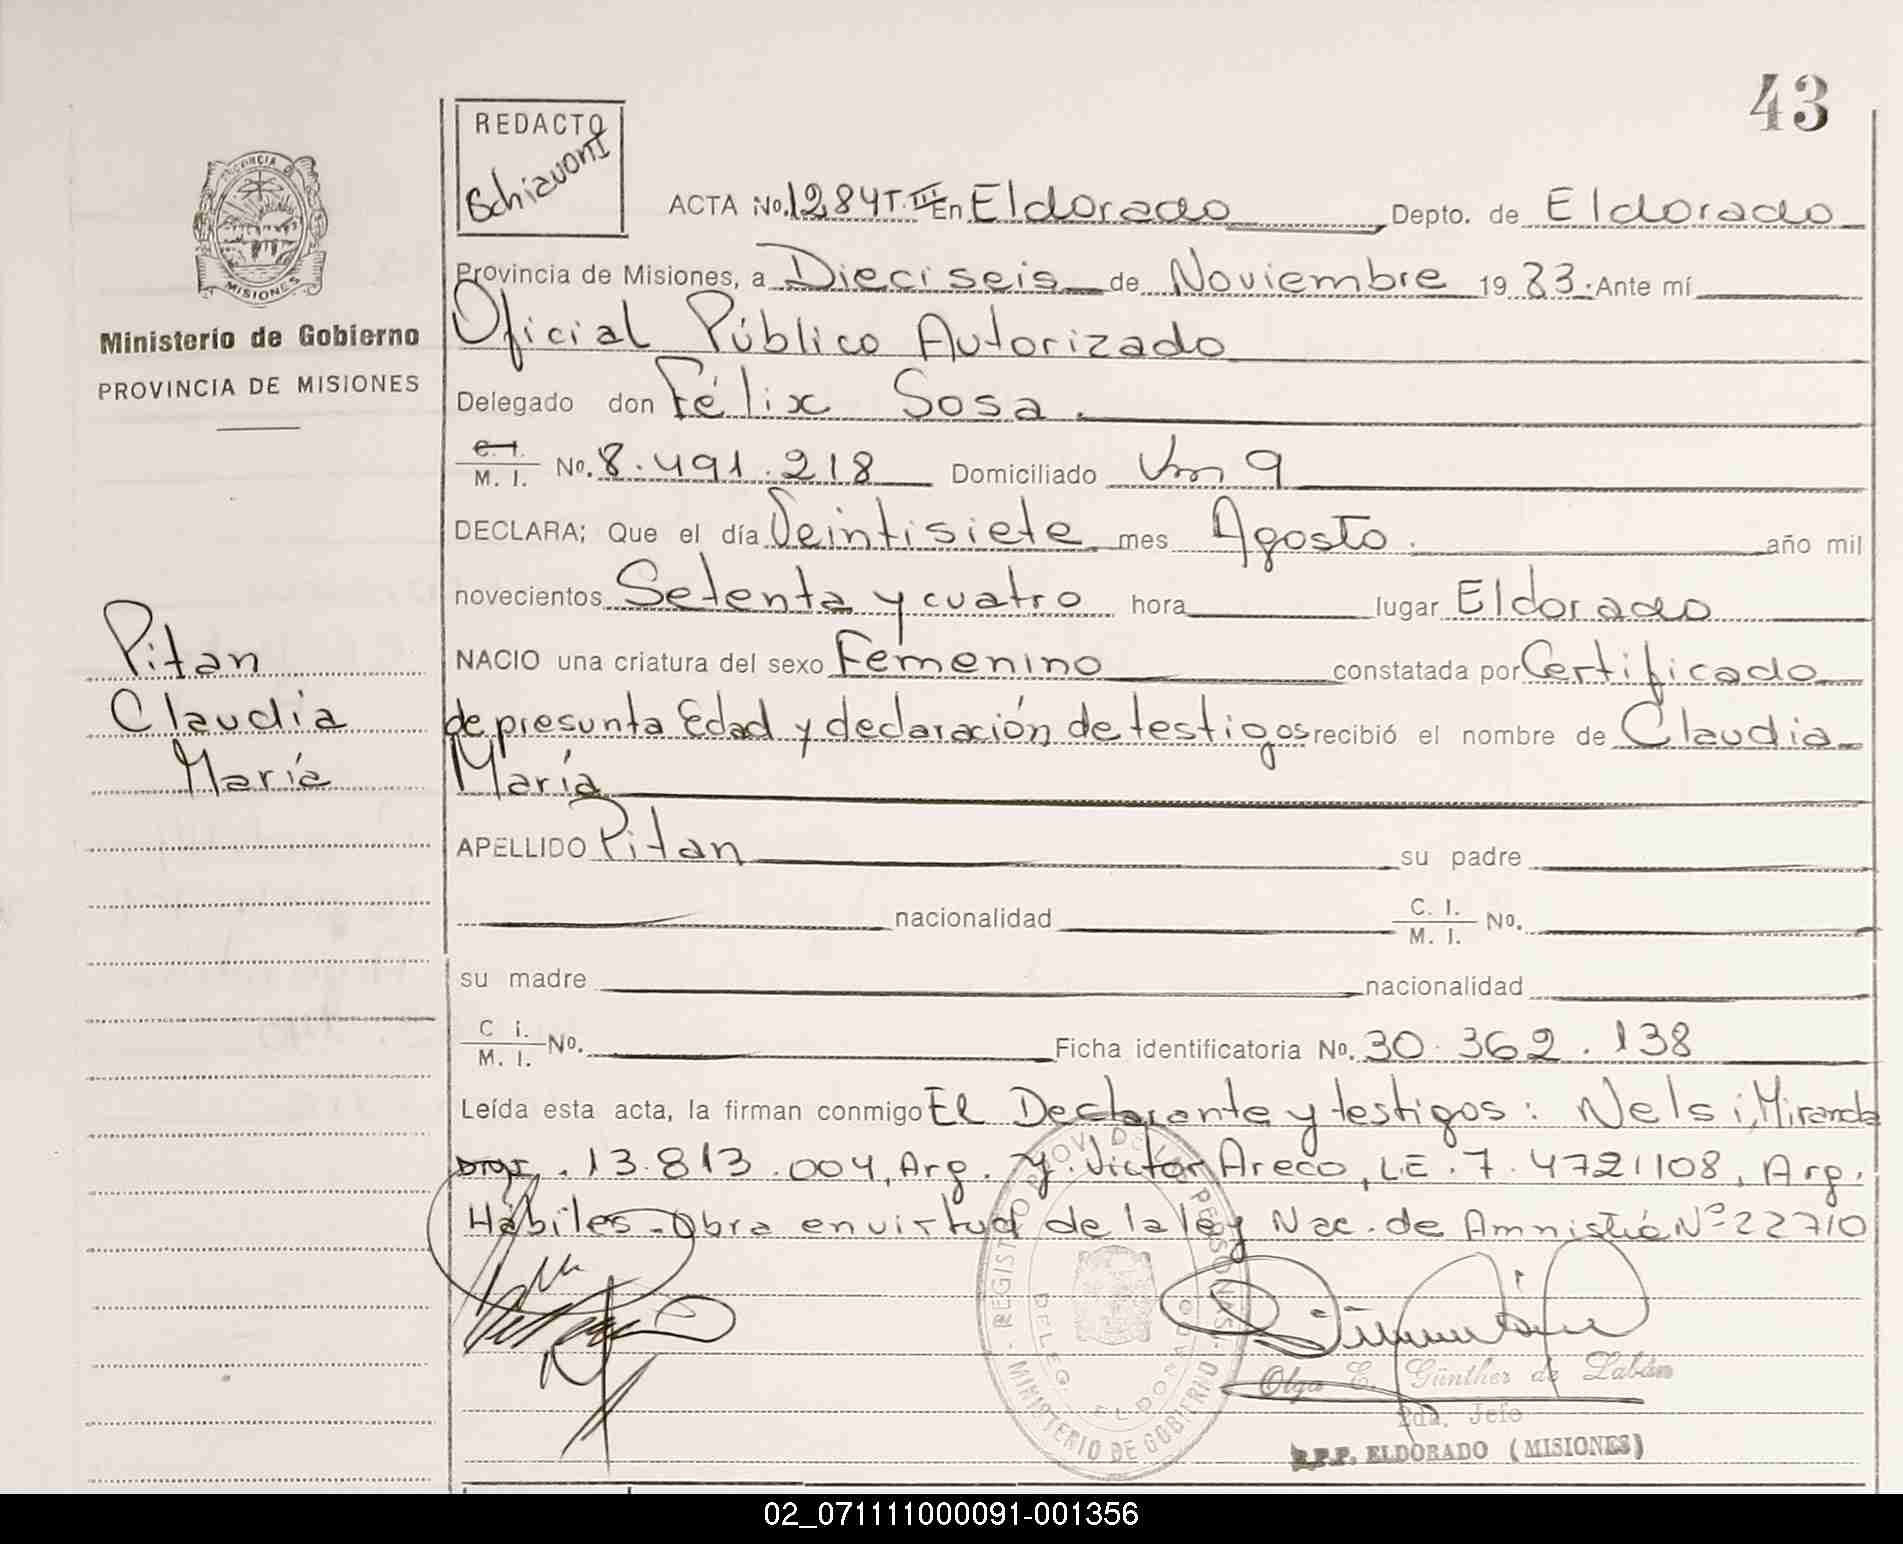 43
REDACTO
Schiavoni
PROVINCIA
MISIONES
Ministerio de Gobierno
PROVINCIA DE MISIONES
ACTA No. 1284 T. III En Eldorado Depto. de Eldorado
Provincia de Misiones, a Dieciseis de Noviembre 1983. Ante mí
Oficial Público Autorizado
Delegado don Félix Sosa.
C. I. M. I. No. 8.491.218 Domiciliado Km 9
DECLARA; Que el día Veintisiete mes Agosto. año mil
novecientos Setenta y cuatro hora lugar Eldorado
NACIO una criatura del sexo Femenino constatada por Certificado
de presunta Edad y declaración de testigos recibió el nombre de Claudia
María
Pitan
Claudia
María
APELLIDO Pitan su padre
nacionalidad C. I. M. I. No.
su madre nacionalidad
C i. M. I. No. Ficha identificatoria No. 30.362.138
Leída esta acta, la firman conmigo El Declarante y testigos: Nelsi, Miranda
13.813.004, Arg. y. Victor Areco, L.E. 7.472.1108, Arg.
Hábiles - Obra en virtud de la ley Nac. de Amnistía Nº 22710
REGISTRO PROV. DE LAS PERSONAS
MINISTERIO DE GOBIERNO
DELEG. ELDORADO
Olga E. Günther de Labán
2da. Jefe
R.P.P. ELDORADO (MISIONES)
02_071111000091-001356